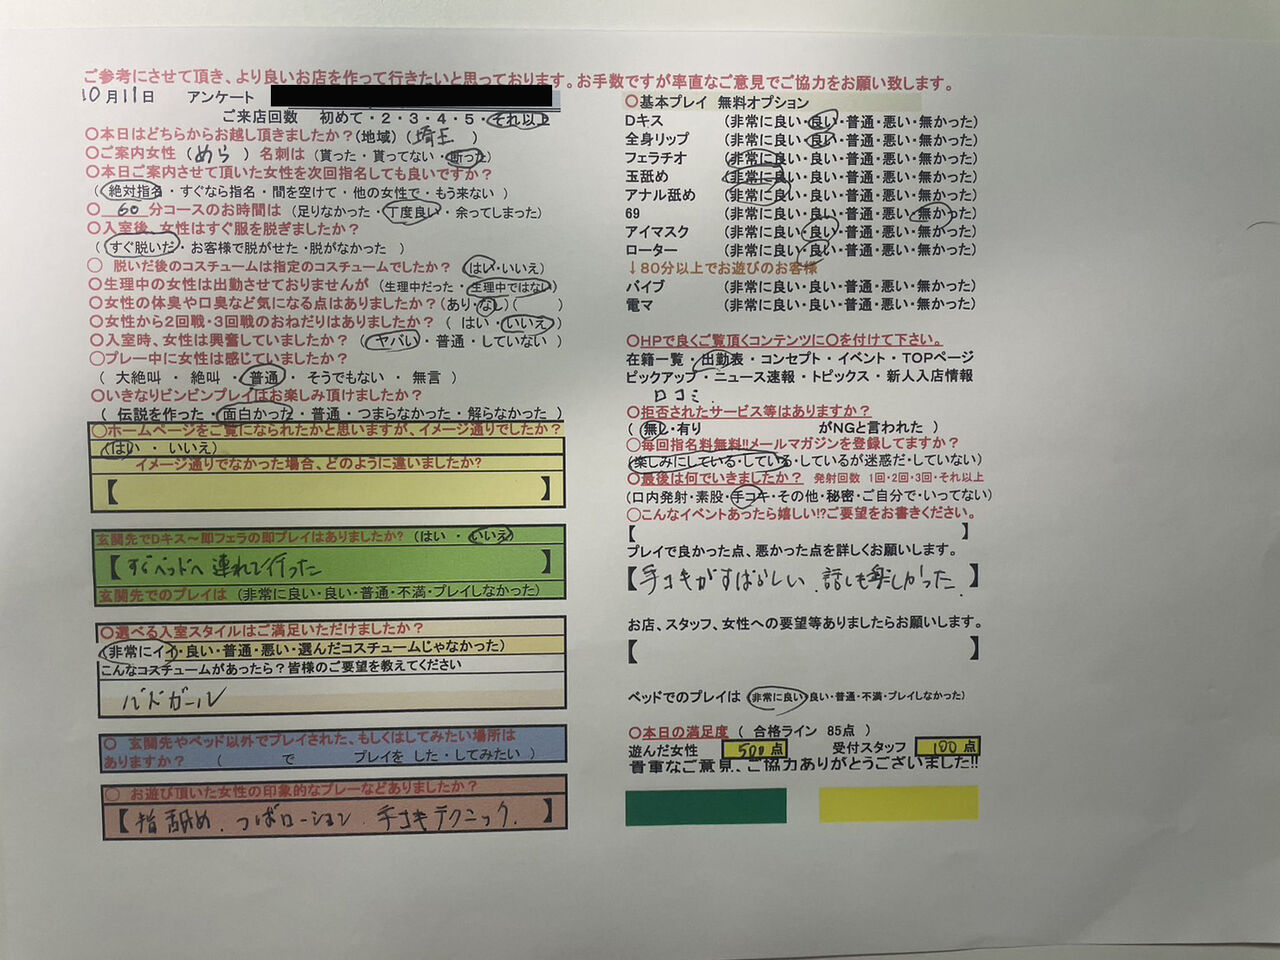 ご参考にさせて頂き、より良いお店を作って行きたいと思っております。お手数ですが率直なご意見でご協力をお願い致します。
10月11日 アンケート
ご来店回数 初めて・2・3・4・5・それ以上
〇本日はどちらからお越し頂きましたか?(地域)(埼玉)
〇ご案内女性(めら)名刺は(貰った・貰ってない・断った)
〇本日ご案内させて頂いた女性を次回指名しても良いですか?
(絶対指名・すぐなら指名・間を空けて・他の女性で・もう来ない)
〇60分コースのお時間は(足りなかった・丁度良い・余ってしまった)
〇入室後、女性はすぐ服を脱ぎましたか?
(すぐ脱いだ・お客様で脱がせた・脱がなかった)
〇脱いだ後のコスチュームは指定のコスチュームでしたか?(はい・いいえ)
〇生理中の女性は出勤させておりませんが(生理中だった・生理中ではない)
〇女性の体臭や口臭など気になる点はありましたか?(あり・なし)( )
〇女性から2回戦・3回戦のおねだりはありましたか?(はい・いいえ)
〇入室時、女性は興奮していましたか?(ヤバい・普通・していない)
〇プレー中に女性は感じていましたか?
(大絶叫・絶叫・普通・そうでもない・無言)
〇いきなりビンビンプレイはお楽しみ頂けましたか?
(伝説を作った・面白かった・普通・つまらなかった・解らなかった)
〇ホームページをご覧になられたかと思いますが、イメージ通りでしたか?
(はい・いいえ)
イメージ通りでなかった場合、どのように違いましたか?
【 】
玄関先でDキス～即フェラの即プレイはありましたか?(はい・いいえ)
【すぐベッドへ連れて行った】
玄関先でのプレイは(非常に良い・良い・普通・不満・プレイしなかった)
〇選べる入室スタイルはご満足いただけましたか?
(非常にイイ・良い・普通・悪い・選んだコスチュームじゃなかった)
こんなコスチュームがあったら?皆様のご要望を教えてください
バドガール
〇 玄関先やベッド以外でプレイされた、もしくはしてみたい場所は
ありますか?( で プレイを した・してみたい )
〇 お遊び頂いた女性の印象的なプレーなどありましたか?
【指舐め、つばローション、手コキテクニック、】
〇基本プレイ 無料オプション
Dキス (非常に良い・良い・普通・悪い・無かった)
全身リップ (非常に良い・良い・普通・悪い・無かった)
フェラチオ (非常に良い・良い・普通・悪い・無かった)
玉舐め (非常に良い・良い・普通・悪い・無かった)
アナル舐め (非常に良い・良い・普通・悪い・無かった)
69 (非常に良い・良い・普通・悪い・無かった)
アイマスク (非常に良い・良い・普通・悪い・無かった)
ローター (非常に良い・良い・普通・悪い・無かった)
↓80分以上でお遊びのお客様
バイブ (非常に良い・良い・普通・悪い・無かった)
電マ (非常に良い・良い・普通・悪い・無かった)
〇HPで良くご覧頂くコンテンツに〇を付けて下さい。
在籍一覧・出勤表・コンセプト・イベント・TOPページ
ピックアップ・ニュース速報・トピックス・新人入店情報
口コミ
〇拒否されたサービス等はありますか?
(無し・有り がNGと言われた )
〇毎回指名料無料!!メールマガジンを登録してますか?
(楽しみにしている・している・しているが迷惑だ・していない)
〇最後は何でいきましたか? 発射回数 1回・2回・3回・それ以上
(口内発射・素股・手コキ・その他・秘密・ご自分で・いってない)
〇こんなイベントあったら嬉しい!?ご要望をお書きください。
【 】
プレイで良かった点、悪かった点を詳しくお願いします。
【手コキがすばらしい、話しも楽しかった】
お店、スタッフ、女性への要望等ありましたらお願いします。
【 】
ベッドでのプレイは(非常に良い・良い・普通・不満・プレイしなかった)
〇本日の満足度(合格ライン 85点)
遊んだ女性 500点 受付スタッフ 100点
貴重なご意見、ご協力ありがとうございました!!